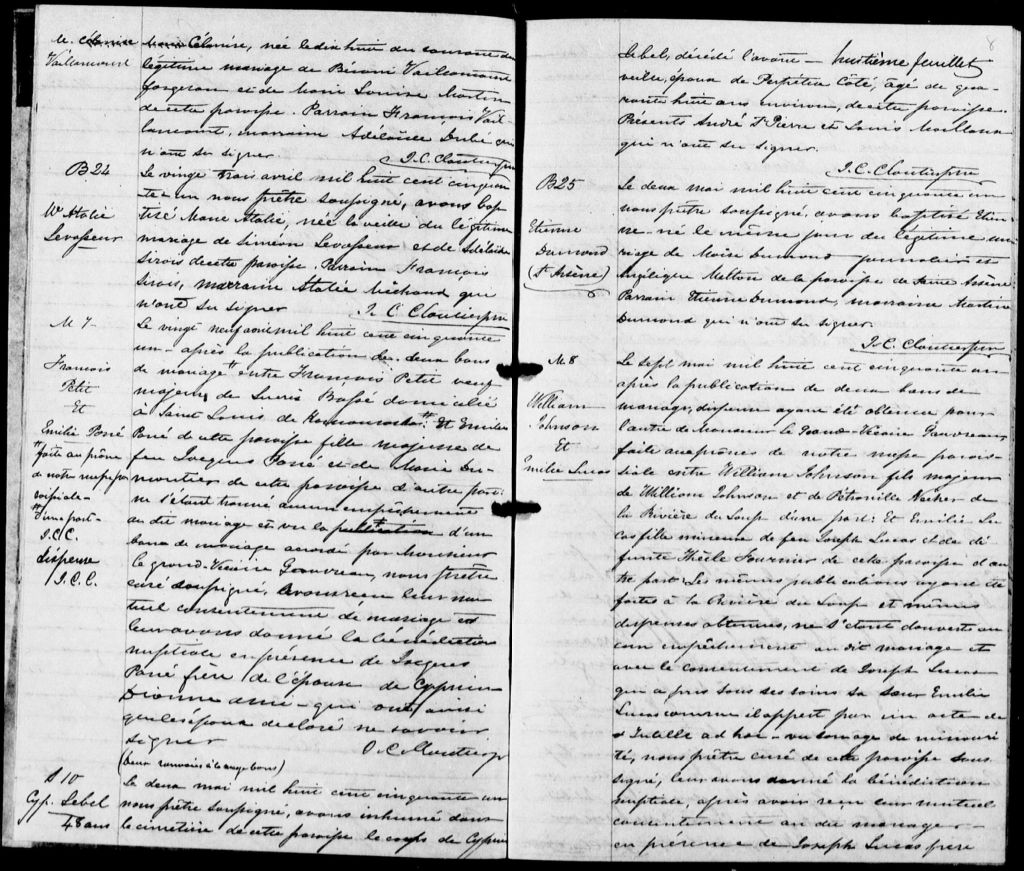 M. Célanise
Vaillancourt
Marie Célanise, née le dix huit du courant du
légitime mariage de Bénoni Vaillancourt
forgeron et de Marie Louise Martin
de cette paroisse. Parrain François Vail-
lancourt, marraine Adélaïse Dubé qui
n'ont su signer
J. C. Cloutier ptre
B 24
M Atalie
Levasseur
Le vingt trois avril mil huit cent cinquan
te un nous prêtre soussigné, avons bap
tisé Marie Atalie, née la veille du légitime
mariage de Siméon Levasseur et de Adélaïde
Sirois de cette paroisse. Parrain François
Sirois, marraine Atalie Michaud qui
n'ont su signer
J. C. Cloutier ptre
M 7
François
Petit
Et
Emilie Poné
Le vingt neuf avril mil huit cent cinquante
un après la publication de deux bans
de mariage entre François Petit veuf
majeur de Lucie Bossé domicilié
à Saint Louis de Kamouraska Et Emilie
Poné de cette paroisse fille majeure de
feu Jacques Poné et de Marie Du-
moutier de cette paroisse d'autre part:
ne s'étant trouvé aucun empêchement
au dit mariage et vu la publication d'un
bans de mariage accordé par Monsieur
le grand-Vicaire Gauvreau, nous prêtre
curé soussigné, avons reçu leur mu
tuel consentement de mariage et
leur avons donné la bénédiction
nuptiale en présence de Jacques
Poné frère de l'épouse de Cyprien
Dionne ami qui ont aussi
que les époux déclaré ne savoir
signer
J. C. Cloutier ptre
(Deux renvois à la marge bons)
faite au prône
de notre messe pa
roissiale
d'une part
J. C. C.
dispense
J. C. C.
S 10
Cyp. Lebel
48 ans
Le deux mai mil huit cent cinquante un
nous prêtre soussigné, avons inhumé dans
le cimetière de cette paroisse le corps de Cyprien
8
huitième feuillet
Lebel, décédé l'avant
veille, époux de Perpétue Côté, âgé de qua-
rante huit ans environ, de cette paroisse.
Présents André St Pierre et Louis Mailloux
qui n'ont su signer.
J. C. Cloutier ptre
B 25
Etienne
Dumond
(St Arsène)
Le deux mai mil huit cent cinquante un
nous prêtre soussigné, avons baptisé Etien
ne né le même jour du légitime ma
riage de Moïse Dumond journalier et
Angélique Metton de la paroisse de Saint Arsène.
Parrain Etienne Dumond, marraine Martine
Dumond qui n'ont su signer.
J. C. Cloutier ptre
M 8
William
Johnson
Et
Emilie Lucas
Le sept mai mil huit cent cinquante un
après la publication de deux bans de
mariage, dispense ayant été obtenue pour
l'autre de Monsieur le Grand-Vicaire Gauvreau
faite aux prônes de notre messe parois-
siale entre William Johnson fils majeur
de William Johnson et de Pétronille
de
la Rivière du Loup d'une part: Et Emilie Lu
cas fille mineure de feu Joseph Lucas et de dé
funte Thècle Fournier de cette paroisse d'au
tre part. Les mêmes publications ayant été
faites à la Rivière du Loup et mêmes
dispenses obtenues, ne s'étant découvert au
cun empêchement au dit mariage et
avec le consentement de Joseph Lucas
qui a pris sous ses soins sa sœur Emilie
Lucas comme il appert par un acte de
tutelle ad hoc vu son âge de minori
té, nous prêtre curé de cette paroisse sous
signé, leur avons donné la bénédiction
nuptiale, après avoir reçu leur mutuel
consentement au dit mariage
en présence de Joseph Lucas frère